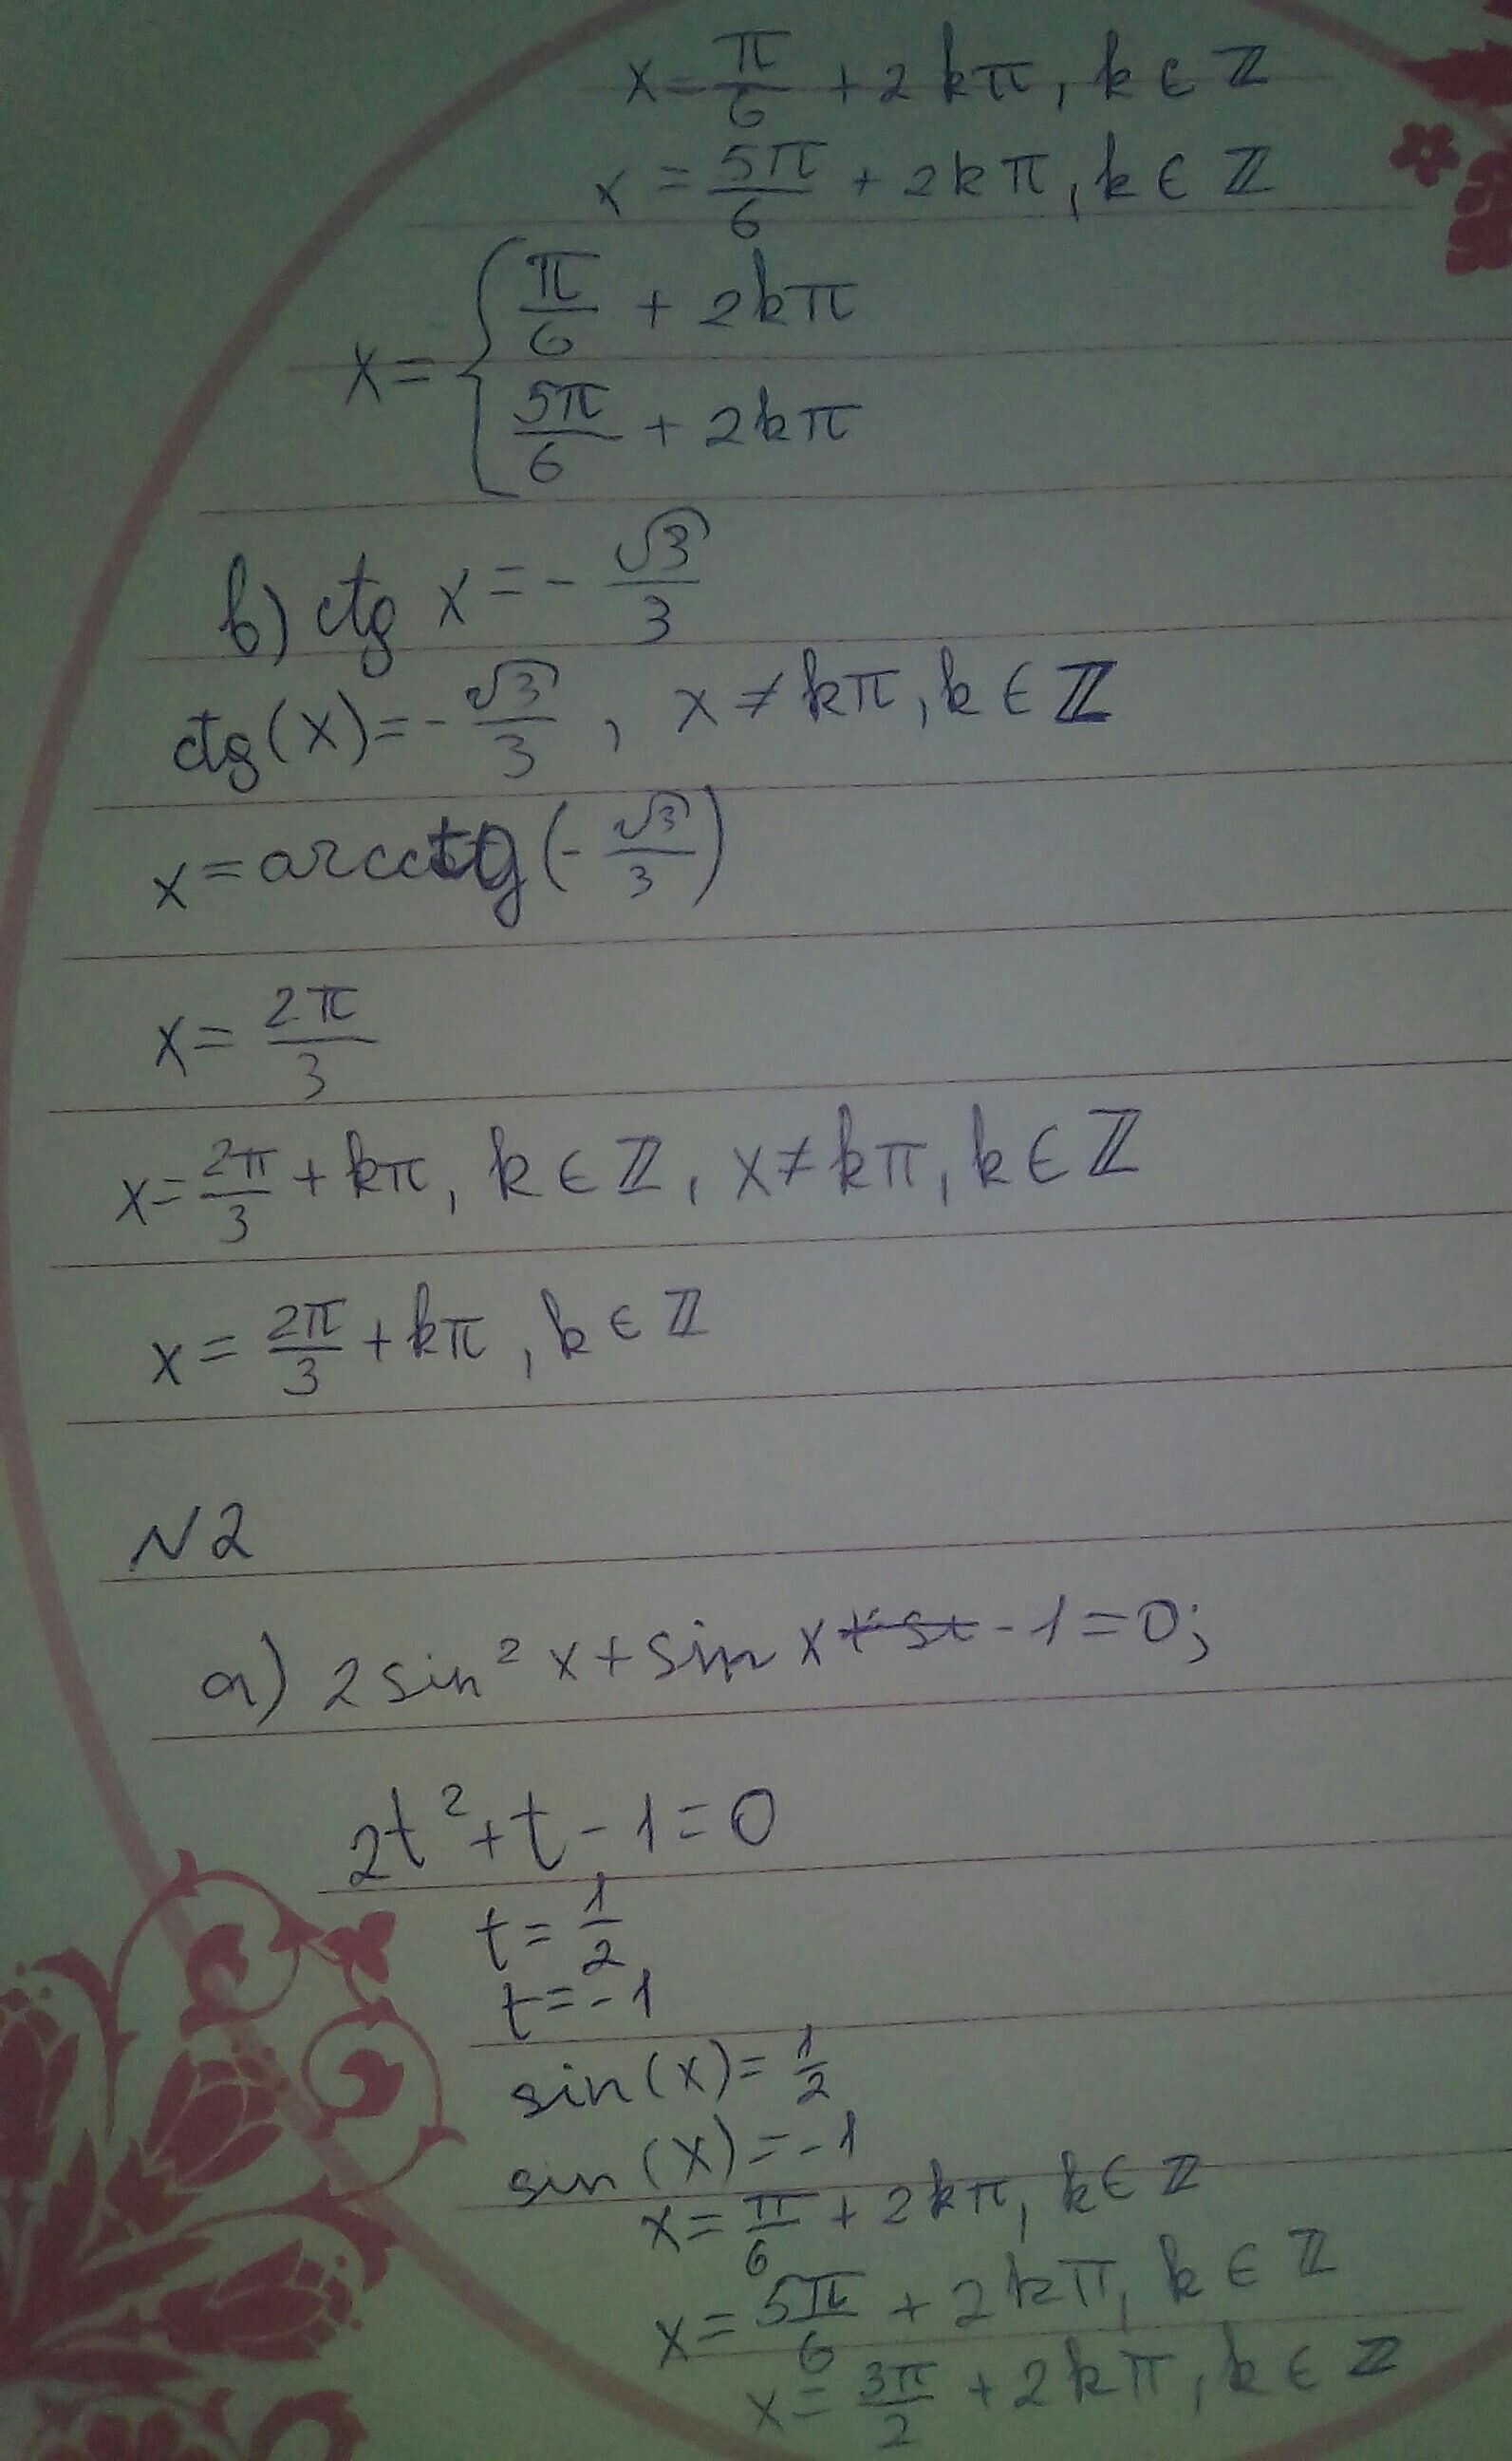 x = π/6 + 2kπ, k ∈ ℤ
x = 5π/6 + 2kπ, k ∈ ℤ
x = { π/6 + 2kπ
5π/6 + 2kπ
в) ctg x = - √3/3
ctg(x) = - √3/3, x ≠ kπ, k ∈ ℤ
x = arcctg(- √3/3)
x = 2π/3
x = 2π/3 + kπ, k ∈ ℤ, x ≠ kπ, k ∈ ℤ
x = 2π/3 + kπ, k ∈ ℤ
N2
а) 2 sin² x + sin x - 1 = 0;
2t² + t - 1 = 0
t = 1/2
t = -1
sin(x) = 1/2
sin(x) = -1
x = π/6 + 2kπ, k ∈ ℤ
x = 5π/6 + 2kπ, k ∈ ℤ
x = 3π/2 + 2kπ, k ∈ ℤ